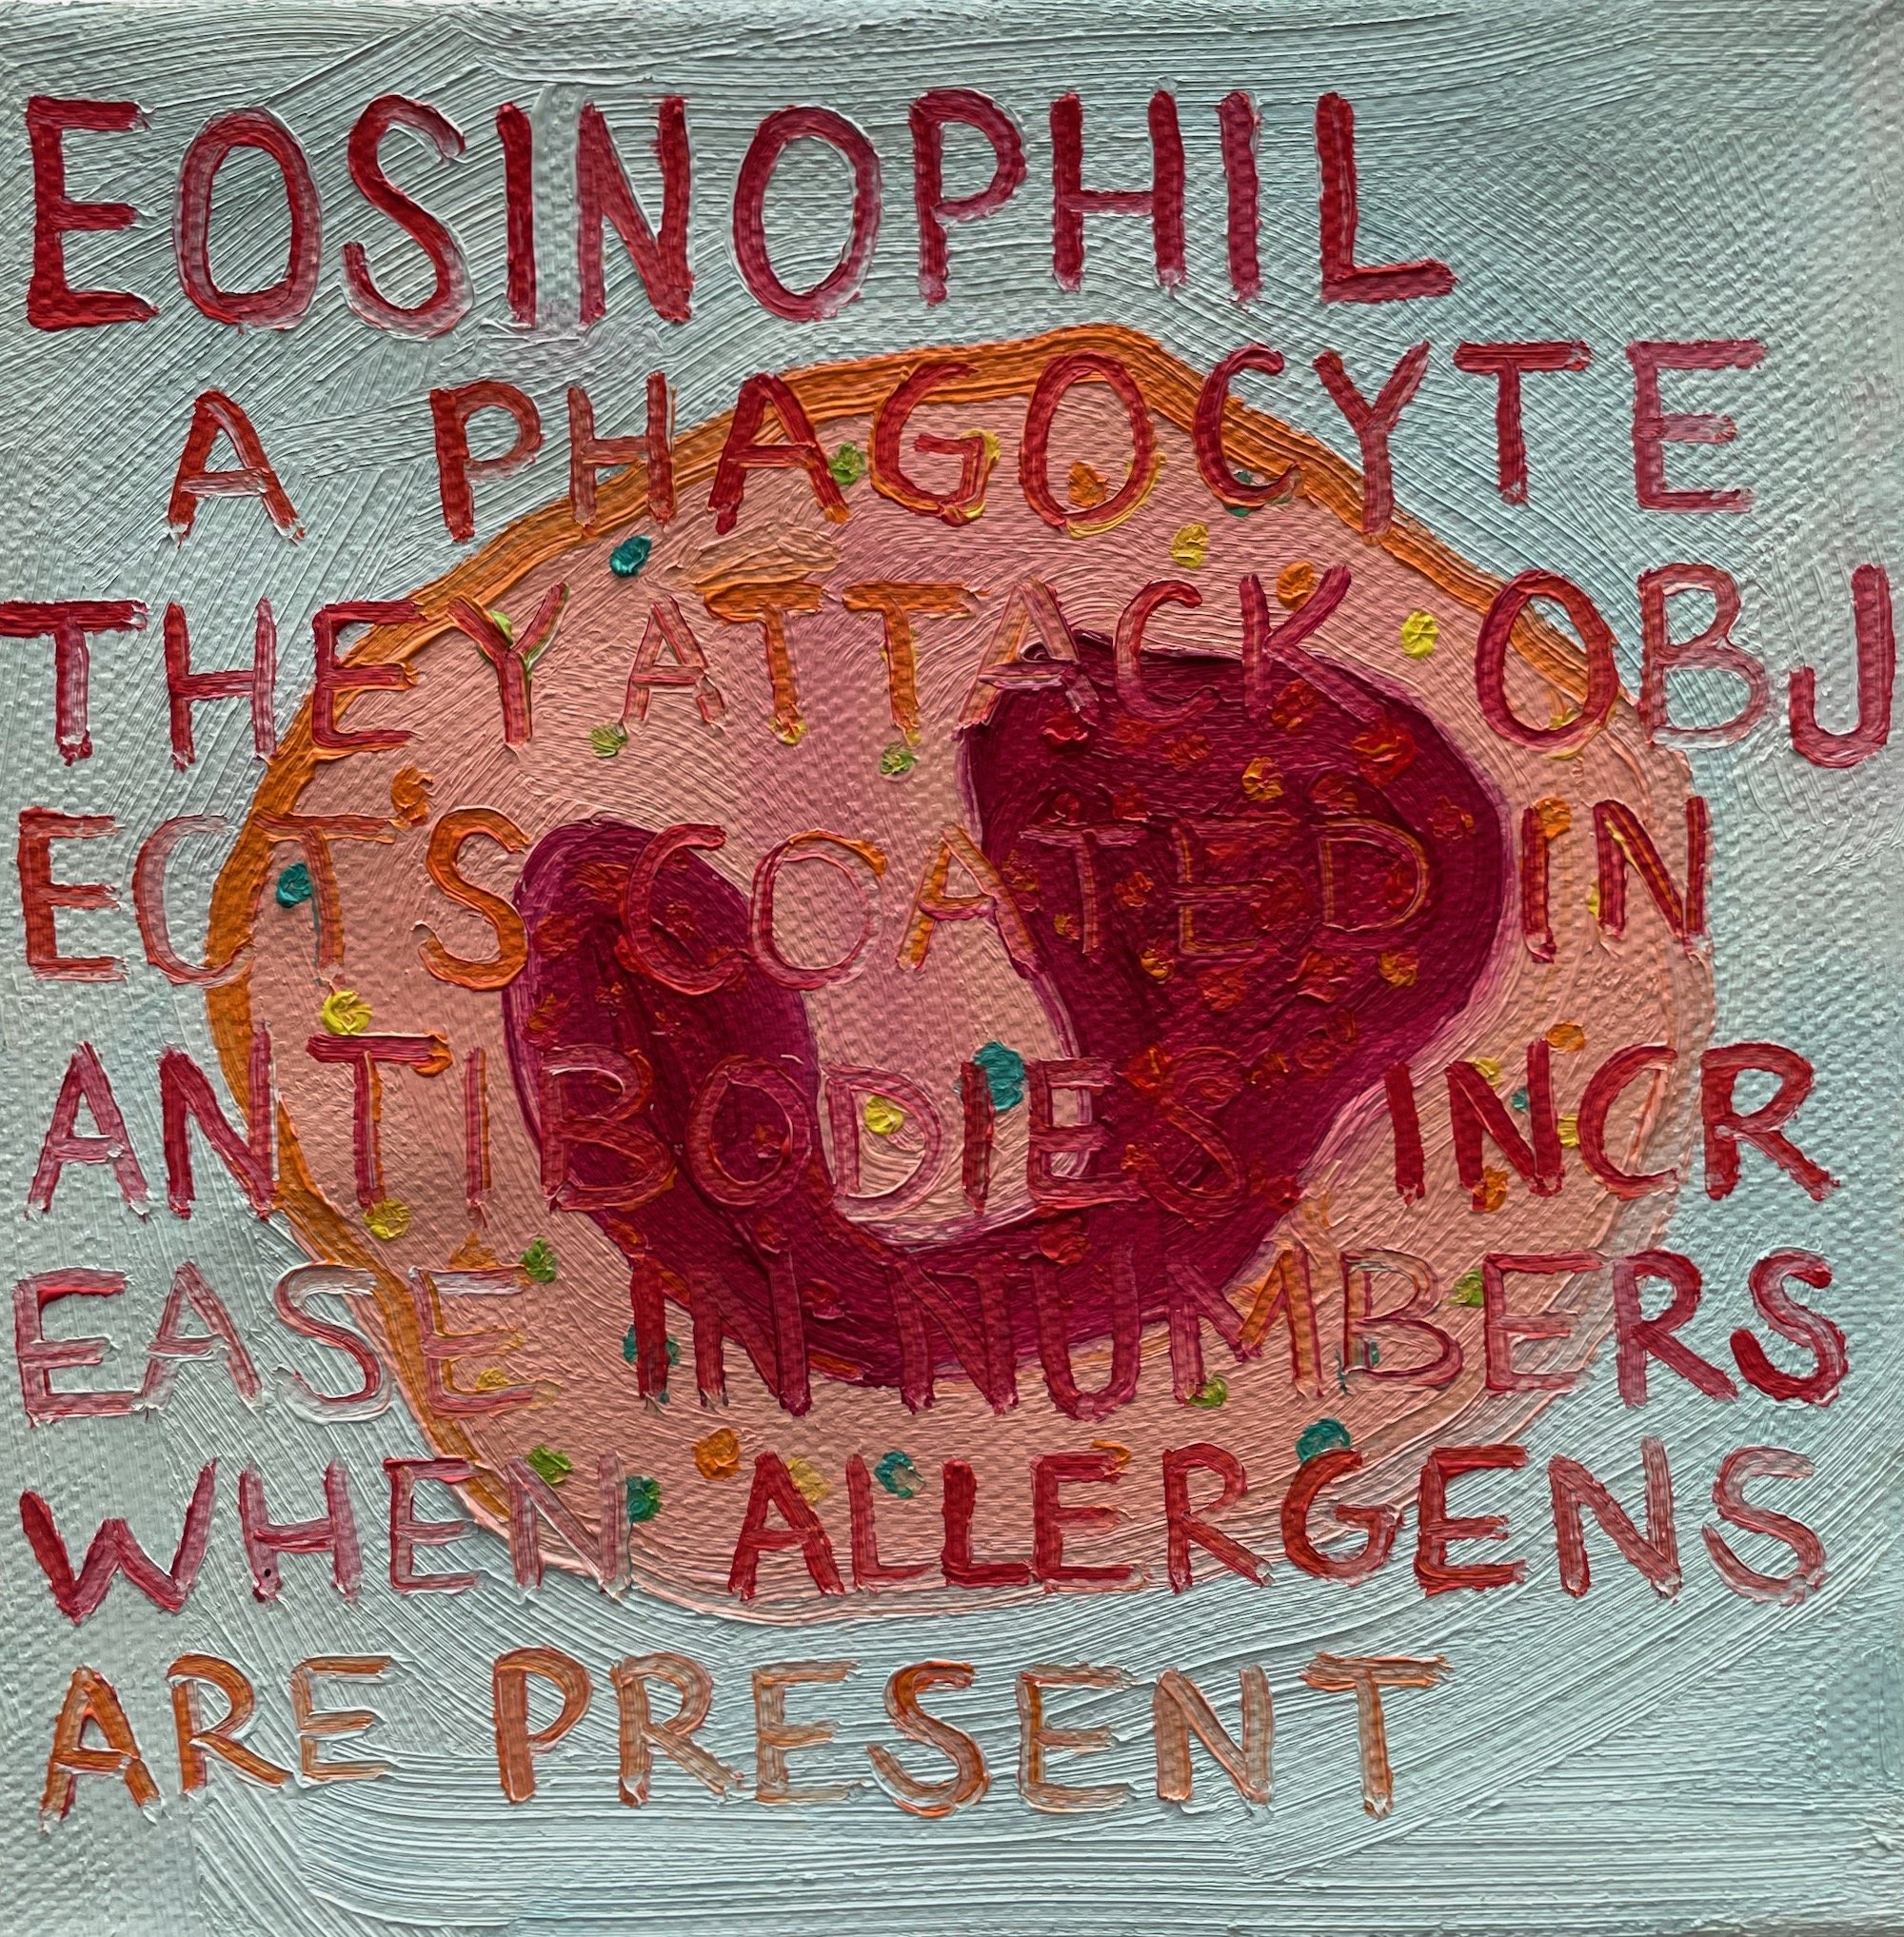 EOSINOPHIL
A PHAGOCYTE
THEY ATTACK OBJ
ECTS COATED IN
ANTIBODIES INCR
EASE IN NUMBERS
WHEN ALLERGENS
ARE PRESENT